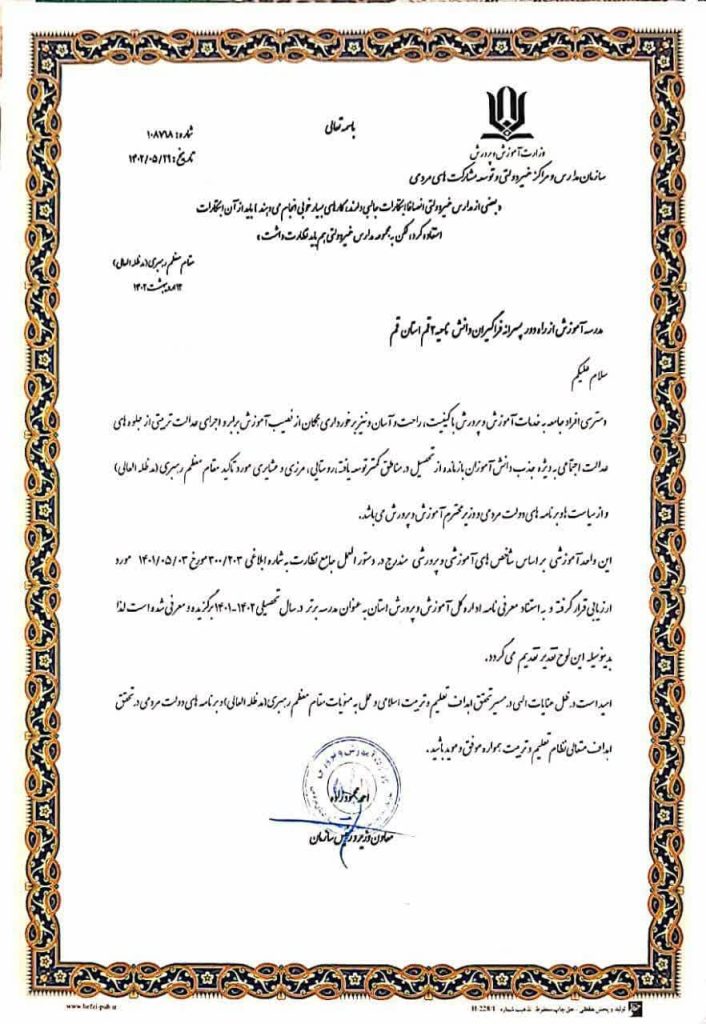 باسمه تعالی
شماره: ۱۰۸۷۶۸
تاریخ: ۱۴۰۲/۰۵/۲۹
وزارت آموزش و پرورش
سازمان مدارس و مراکز غیردولتی و توسعه مشارکت های مردمی
« بعضی از مدارس غیردولتی انصافا ابتکارات جالبی دارند، کارهای بسیار خوبی انجام می دهند ؛ باید از آن ابتکارات
استفاده کرد، لکن به مجموعه مدارس غیردولتی هم باید نظارت داشت »
مقام معظم رهبری (مدظله العالی)
۱۲ اردیبهشت ۱۴۰۲
مدرسه آموزش از راه دور پسرانه فراگیران دانش ناحیه ۲ قم استان قم
سلام علیکم
دسترسی افراد جامعه به خدمات آموزش و پرورش با کیفیت، راحت و آسان و نیز برخورداری همگان از نصیب آموزش برابر و اجرای عدالت تربیتی از جلوه های
عدالت اجتماعی به ویژه جذب دانش آموزان بازمانده از تحصیل در مناطق کمتر توسعه یافته، روستایی، مرزی و عشایری مورد تاکید مقام معظم رهبری (مدظله العالی)
و از سیاست ها و برنامه های دولت مردمی و وزیر محترم آموزش و پرورش می باشد.
این واحد آموزشی بر اساس شاخص های آموزشی و پرورشی مندرج در دستور العمل جامع نظارت به شماره ابلاغی ۳۰۰/۲۰۳ مورخ ۱۴۰۱/۰۵/۰۳ مورد
ارزیابی قرار گرفته و به استناد معرفی نامه اداره کل آموزش و پرورش استان به عنوان مدرسه برتر در سال تحصیلی ۱۴۰۲-۱۴۰۱ برگزیده و معرفی شده است لذا
بدینوسیله این لوح تقدیر تقدیم می گردد.
امید است در ظل عنایات الهی در مسیر تحقق اهداف تعلیم و تربیت اسلامی و عمل به منویات مقام معظم رهبری (مدظله العالی) و برنامه های دولت مردمی در تحقق
اهداف متعالی نظام تعلیم و تربیت همواره موفق و موید باشید.
احمد محمودزاده
معاون وزیر و رئیس سازمان